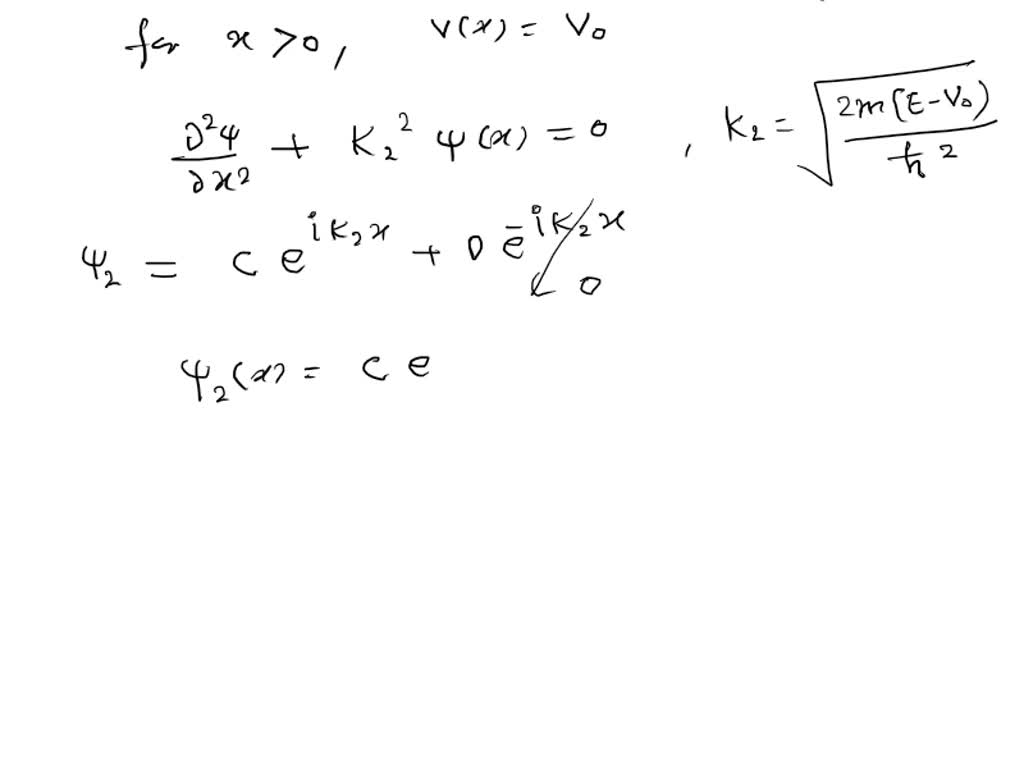 for x > 0, V(x) = V₀
∂²ψ/∂x² + K₂² ψ(x) = 0 , K₂ = √(2m(E-V₀)/ħ²)
ψ₂ = C e^{iK₂x} + D e^{-iK₂x} 0
ψ₂(x) = C e